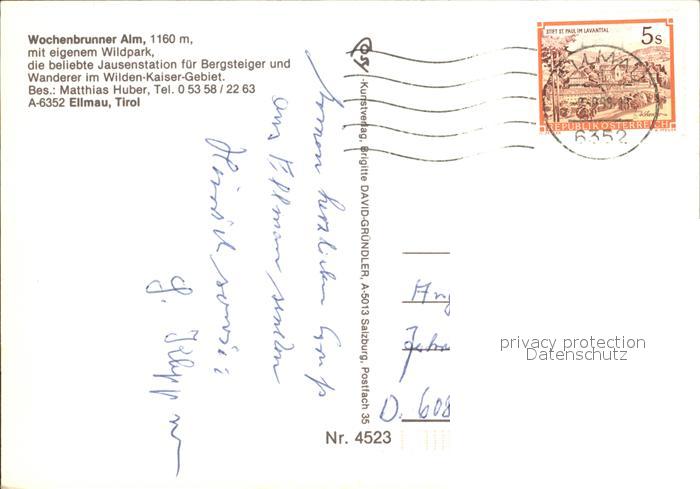 Wochenbrunner Alm, 1160 m,
mit eigenem Wildpark,
die beliebte Jausenstation für Bergsteiger und
Wanderer im Wilden-Kaiser-Gebiet.
Bes.: Matthias Huber, Tel. 0 53 58 / 22 63
A-6352 Ellmau, Tirol
herzlichen Gruß
aus Ellmau senden
-Kunstverlag, Brigitte DAVID-GRÜNDLER, A-5013 Salzburg, Postfach 35
Nr. 4523
STIFT ST. PAUL IM LAVANTTAL
5 S
REPUBLIK ÖSTERREICH
ELLMAU
6352
D. 608
privacy protection
Datenschutz